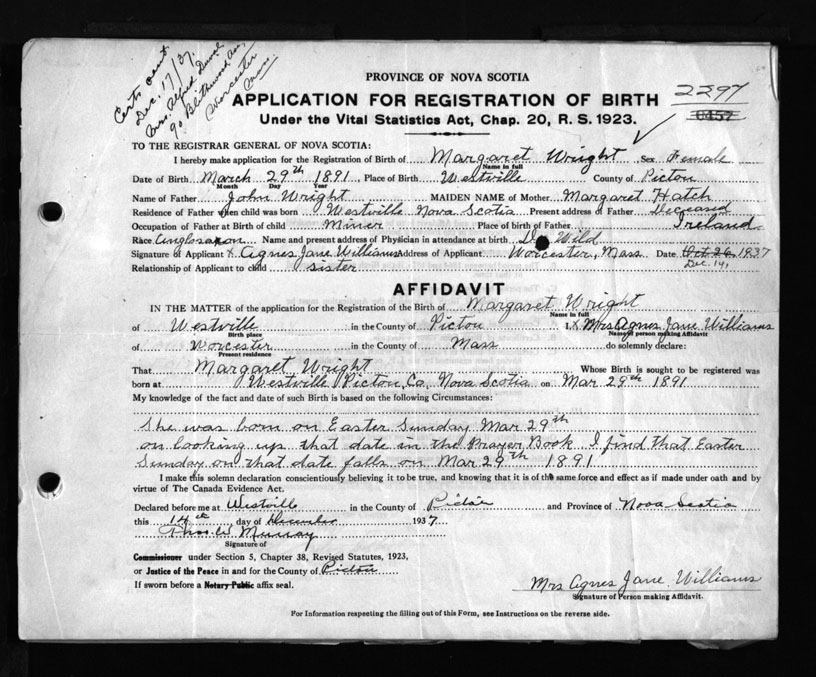 Certs sent
Dec. 17/37.
Mrs. Alfred Duval
90 Blithewood Ave,
Worcester
Mass.
PROVINCE OF NOVA SCOTIA
2297
APPLICATION FOR REGISTRATION OF BIRTH
0457
Under the Vital Statistics Act, Chap. 20, R. S. 1923.
TO THE REGISTRAR GENERAL OF NOVA SCOTIA:
I hereby make application for the Registration of Birth of Margaret Wright Sex Female
Name in full
Date of Birth March 29th 1891 Place of Birth Westville County of Pictou
Month Day Year
Name of Father John Wright MAIDEN NAME of Mother Margaret Hatch
Residence of Father when child was born Westville Nova Scotia Present address of Father Deceased
Occupation of Father at Birth of child Miner Place of birth of Father Ireland
Race Anglosaxon Name and present address of Physician in attendance at birth Dr Wild
Signature of Applicant X Agnes Jane Williams Address of Applicant Worcester, Mass Date Oct 26, 1937
Dec. 14,
Relationship of Applicant to child sister
AFFIDAVIT
IN THE MATTER of the application for the Registration of the Birth of Margaret Wright
Name in full
of Westville in the County of Pictou I, X Mrs Agnes Jane Williams
Birth place Name of person making Affidavit
of Worcester in the County of Mass do solemnly declare:
Present residence
That Margaret Wright Whose Birth is sought to be registered was
born at Westville Pictou, Co, Nova Scotia on Mar 29th 1891
My knowledge of the fact and date of such Birth is based on the following Circumstances:
She was born on Easter Sunday Mar 29th
on looking up that date in the Prayer Book I find that Easter
Sunday on that date falls on Mar 29th 1891
I make this solemn declaration conscientiously believing it to be true, and knowing that it is of the same force and effect as if made under oath and by
virtue of The Canada Evidence Act.
Declared before me at Westville in the County of Pictou and Province of Nova Scotia
this 14th day of December 1937
Thos W Murray
Signature of
Commissioner under Section 5, Chapter 38, Revised Statutes, 1923,
or Justice of the Peace in and for the County of Pictou
If sworn before a Notary Public affix seal.
Mrs Agnes Jane Williams
Signature of Person making Affidavit.
For Information respecting the filling out of this Form, see Instructions on the reverse side.